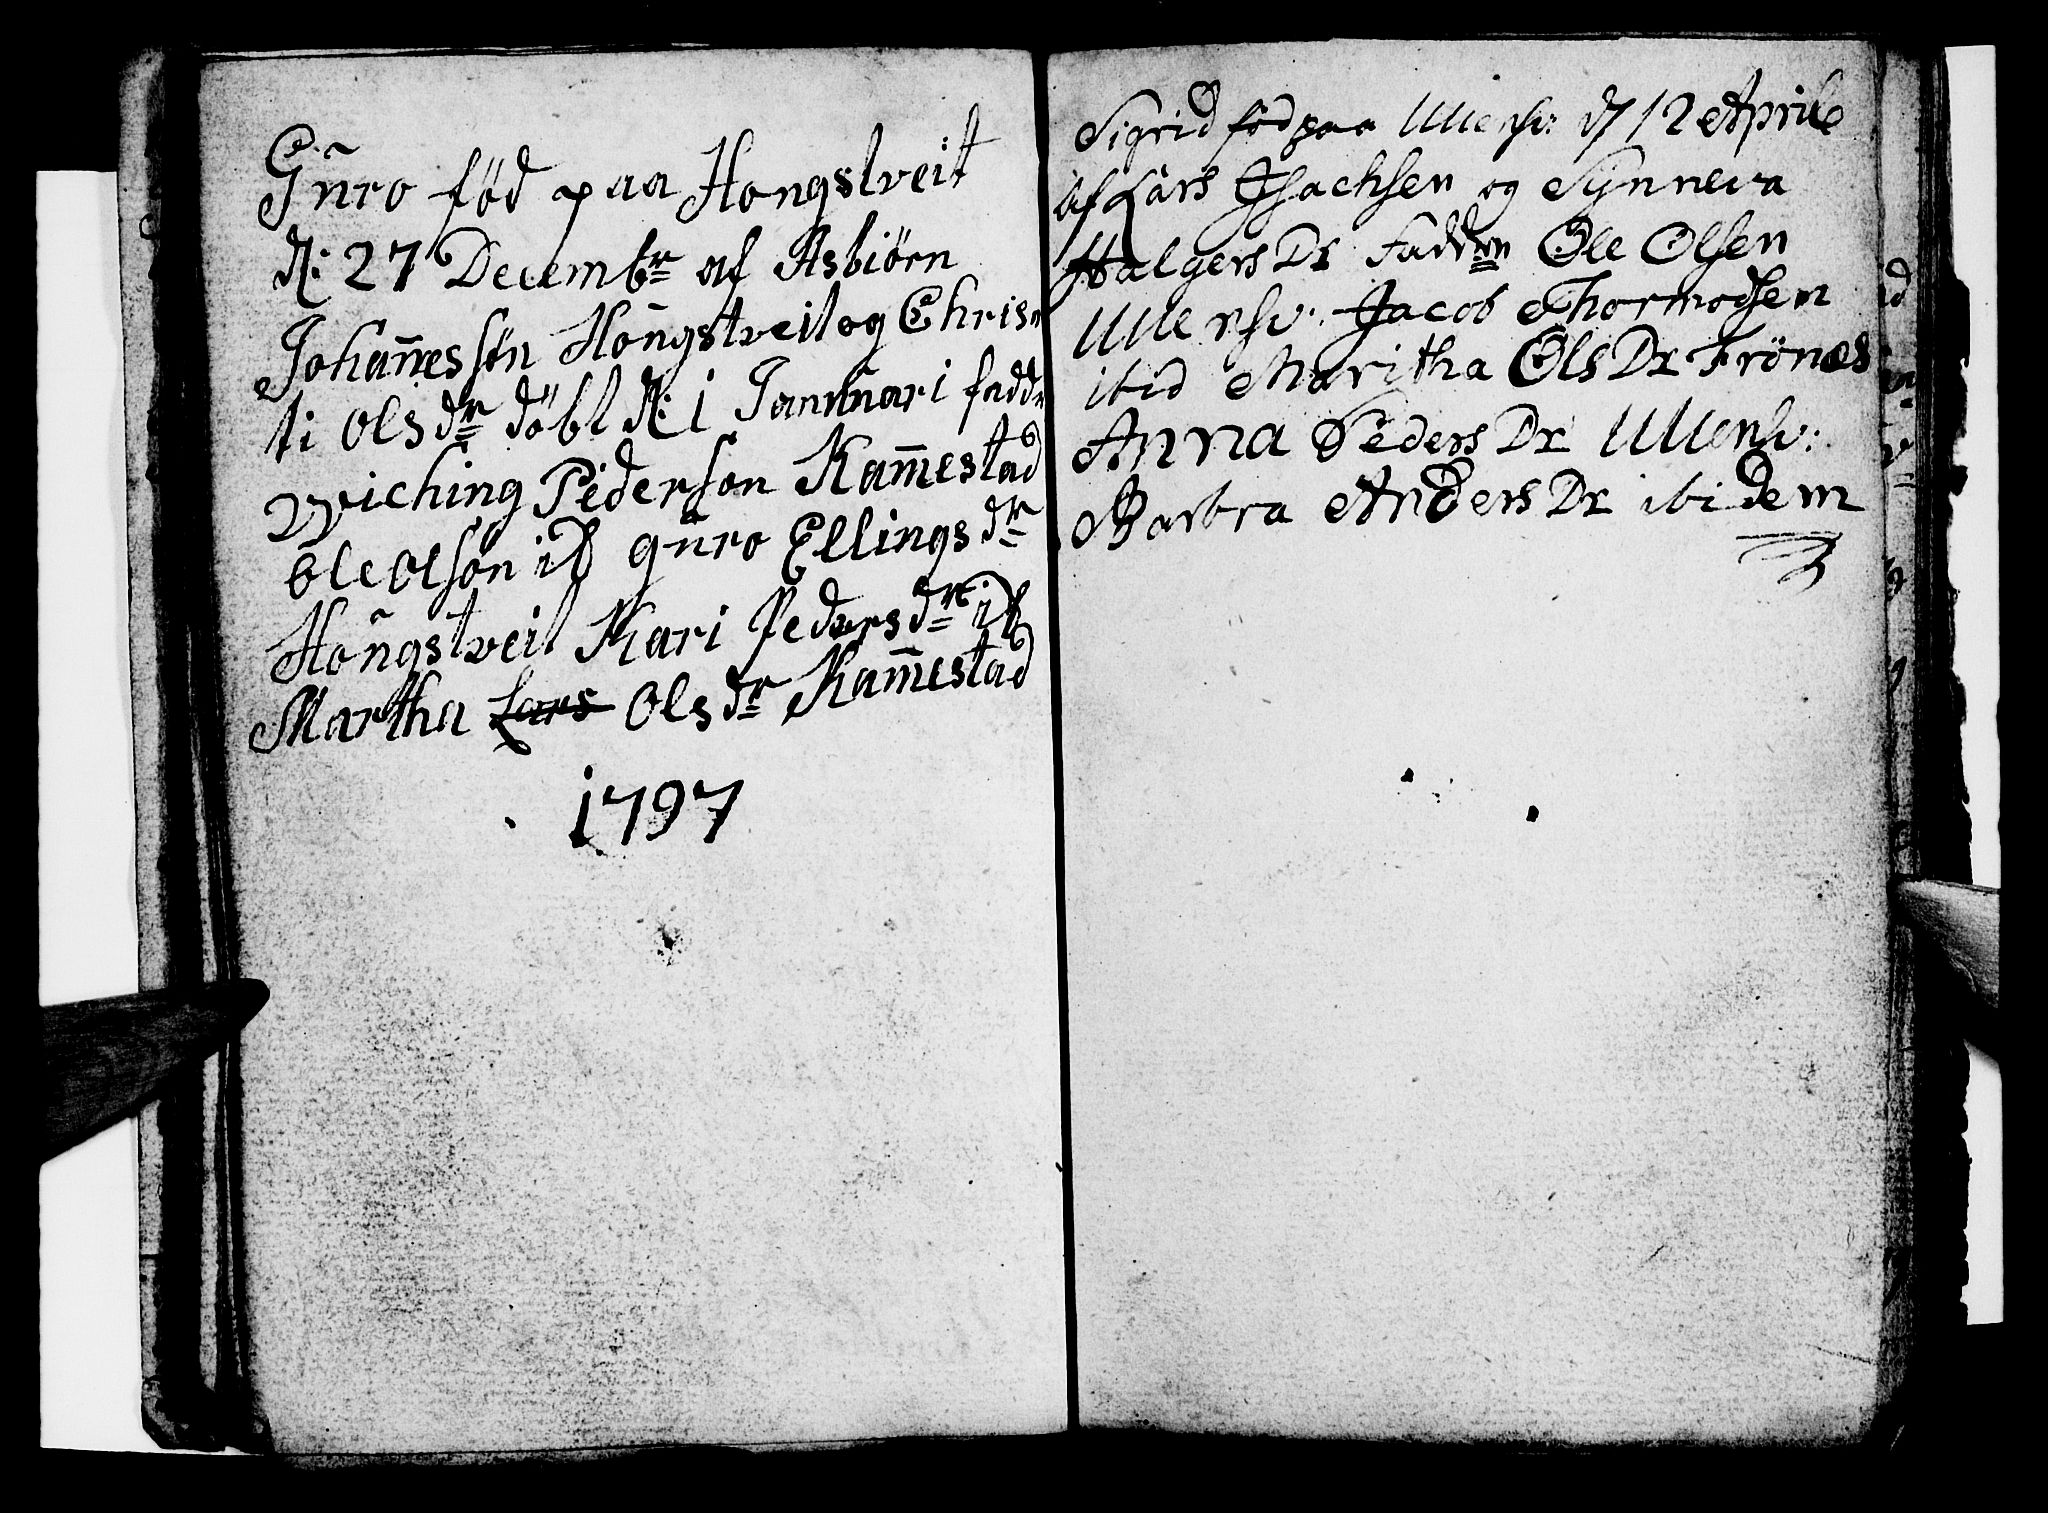 Gũro fød paa Hongstveit
d: 27 Decembr af Asbiørn
Johan̄essøn Hongstveit og Chris
ti Olsdr døbt d: 1 Januari fadd
Wiching Pederson Kam̄estad
Ole Olson ib gũro Ellingsdr
Hongstveit Kari Pedersdr ib
Martha Lars Olsdr Kam̄estad
1797
Sigrid fød paa Ullensv: d 12 Aprile
af Lars Jsachsen og Synneva
Halgers Dr Faddrn Ole Olsen
Ullensv. Jacob Thormodsen
ibid Maritha Ols Dr Frönæs
Anna Peders Dr Ullensv:
Barbra Anders Dr ibidem